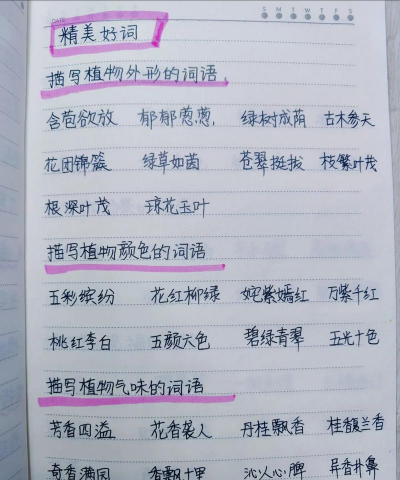 DATE
S M T W T F S
精美好词
描写植物外形的词语
含苞欲放 郁郁葱葱, 绿树成荫 古木参天
花团锦簇 绿草如茵 苍翠挺拔 枝繁叶茂
根深叶茂 琼花玉叶
描写植物颜色的词语
五彩缤纷 花红柳绿 姹紫嫣红 万紫千红
桃红李白 五颜六色 碧绿青翠 五光十色
描写植物气味的词语
芳香四溢 花香袭人 丹桂飘香 桂馥兰香
奇香满园 香飘十里 沁人心脾 异香扑鼻